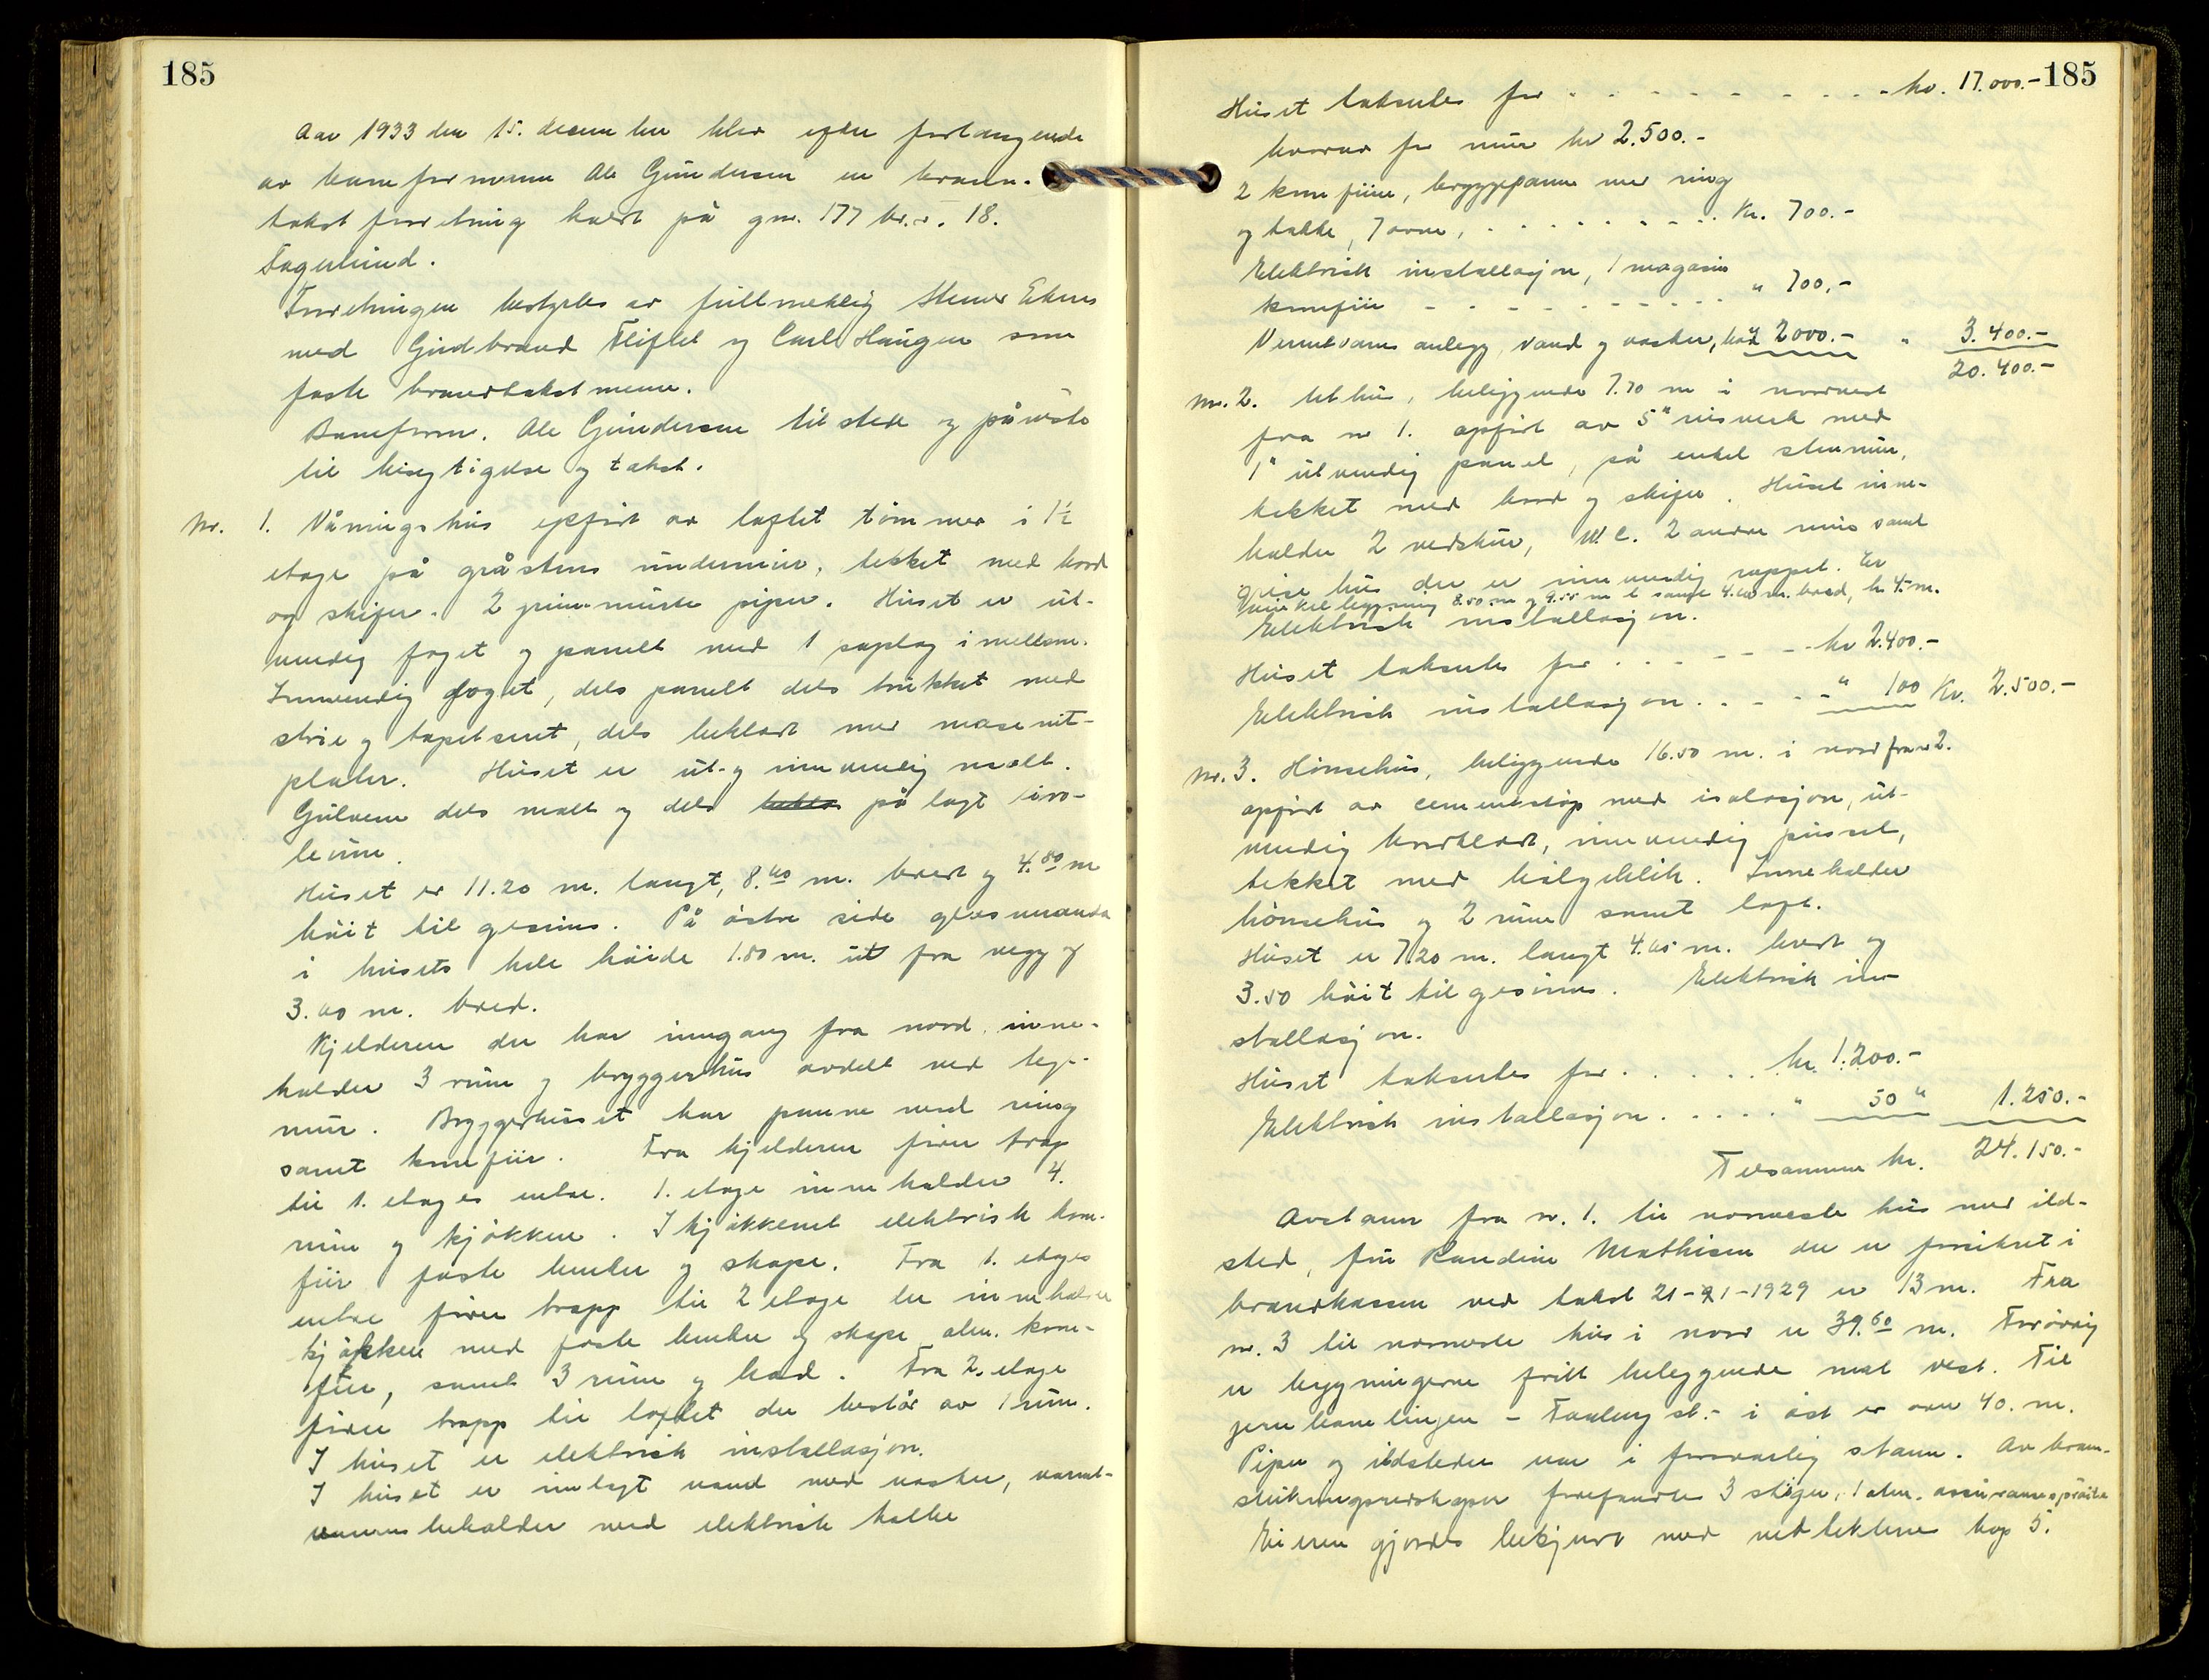 185
Aar 1933 den 15. december blev efter forlangende
av baneformann Ole Gundersen en brann-
takst forretning holdt på gnr. 177 br.nr. 18.
Fagerlund.
Forretningen bestyrtes av fullmektig
med Gudbrand Fliflet og Carl Haugen som
faste brandtakstmenn.
Baneform. Ole Gundersen tilstede og påviste
til besigtigelse og takst.
Nr. 1. Våningshus opført av laftet tømmer i 1½
etage på gråstens undermur, tekket med bord
og skifer. 2 grunnmurte piper. Huset er ut-
vendig foret og panelt med 1 paplag imellem.
Innvendig foret, dels panelt dels trukket med
strie og tapetseret, dels beklædt med masonit-
plater. Huset er ut- og innvendig malt.
Gulvene dels malt og dels pålagt lino-
leum.
Huset er 11.20 m. langt, 8.40 m. bredt og 4.80 m
høit til gesims. På østre side glasveranda
i husets hele høide 1.80 m. ut fra vegg og
3.40 m. bred.
Kjelderen der har inngang fra nord inne-
holder 3 rum og bryggerhus avdelt ved tegl-
mur. Bryggerhuset har panne med ring
samt komfür. Fra kjelderen fører trap
til 1. etages entre. 1. etage inneholder 4.
rum og kjøkken. I kjøkkenet elektrisk kom-
für faste benker og skape. Fra 1. etages
entre fører trapp til 2 etage der inneholder
kjøkken med faste benker og skape alm. kom-
für, samt 3 rum og bad. Fra 2. etage
fører trapp til loftet der består av 1 rum.
I huset er elektrisk installasjon.
I huset er innlagt vand med vasker, varmt-
vanns beholder med elektrisk kolbe
185
Huset takseres for - - - - - - - - - kr. 17.000.-
hvorav for mur kr 2.500.-
2 komfüre, bryggepanne med ring
og takke, 7 ovne, . . . . . . . . . Kr. 700.-
Elektrisk installasjon, 1 magasin
komfür - - - - - - - - - - " 700.-
Varmtvanns anlegg, vand og vasker, bad 2000.- " 3.400.-
20.400.-
Nr. 2. Uthus, beliggende 7.70 m i nordvest
fra nr 1. opført av 5" reisverk med
1" utvendig panel, på enkel stenmur,
tekket med bord og skifer. Huset inne-
holder 2 vedskur, W.C. 2 andre rum samt
grise hus der er innvendig rappet. Er
vinkelbygning 8.50 m og 9.50 m l. samt 4.40 m. bred, h. 4.- m.
Elektrisk installasjon.
Huset takseres for . . - - - - - kr 2.400.-
Elektrisk installasjon. . - - - " 100 Kr. 2.500.-
Nr. 3. Hønsehus, beliggende 16.50 m. i nord fra nr 2.
opført av cementstøp med isolasjon, ut-
vendig bordklædt, innvendig pusset,
tekket med bølgeblik. Inneholder
hønsehus og 2 rum samt loft.
Huset er 7.20 m. langt 4.40 m. bredt og
3.50 høit til gesims. Elektrisk inn-
stallasjon.
Huset takseres for . . . . . . kr. 1.200.-
Elektrisk installasjon. . . . . " 50 " 1.250.-
Tilsammen kr. 24.150.-
Avstann fra nr. 1. til nærmeste hus med ild-
sted, fru Randine Mathisen der er forsikret i
brandkassen ved takst 21-21-1929 er 13 m. Fra
nr. 3 til nærmeste hus i nord er 39.60 m. Forøvrig
er bygningerne fritt beliggende mot vest. Til
jernbanelinjen - Fauberg st.- i øst er over 40. m.
Piper og ildsteder var i forsvarlig stann. Av bran-
slukningsredskaper forefandtes 3 stiger, 1 alm. assuransesprøite
Eieren gjordes bekjent med vedtektenes kap 5.